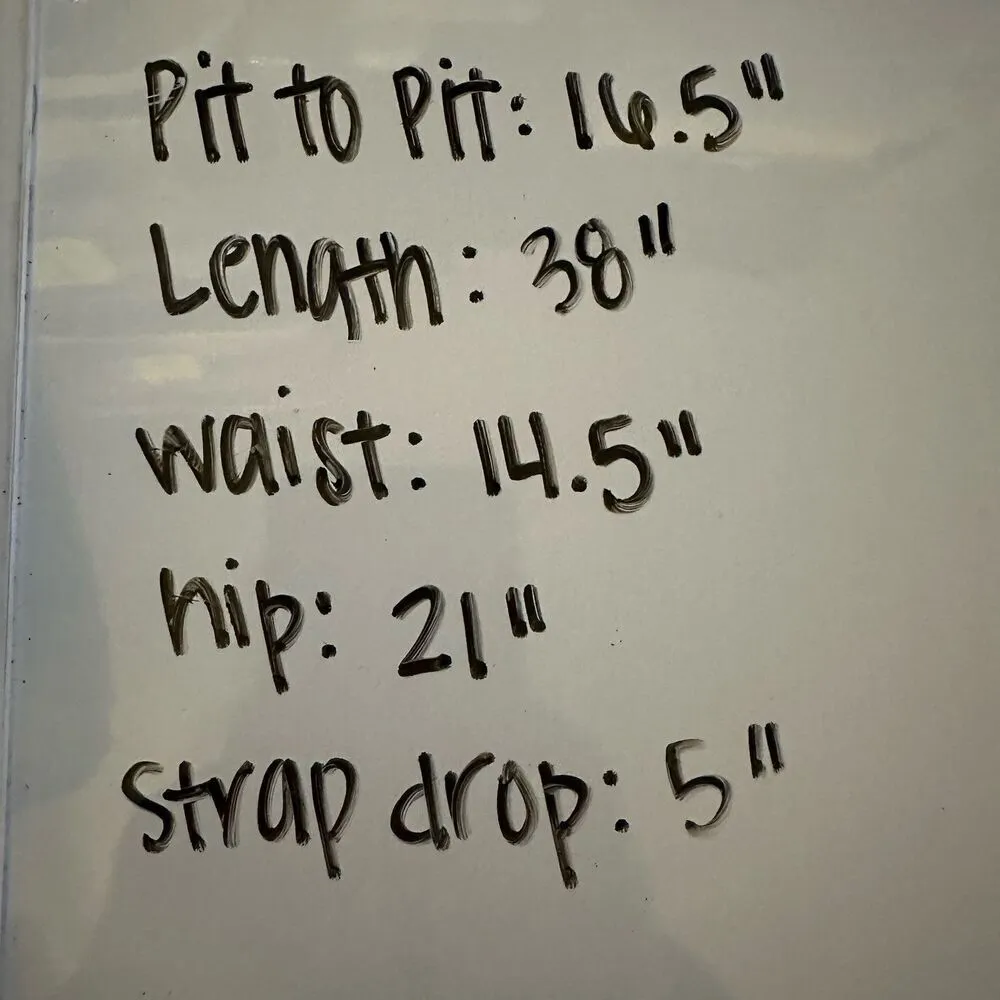 Pit to Pit: 16.5"
Length: 38"
waist: 14.5"
hip: 21"
strap drop: 5"